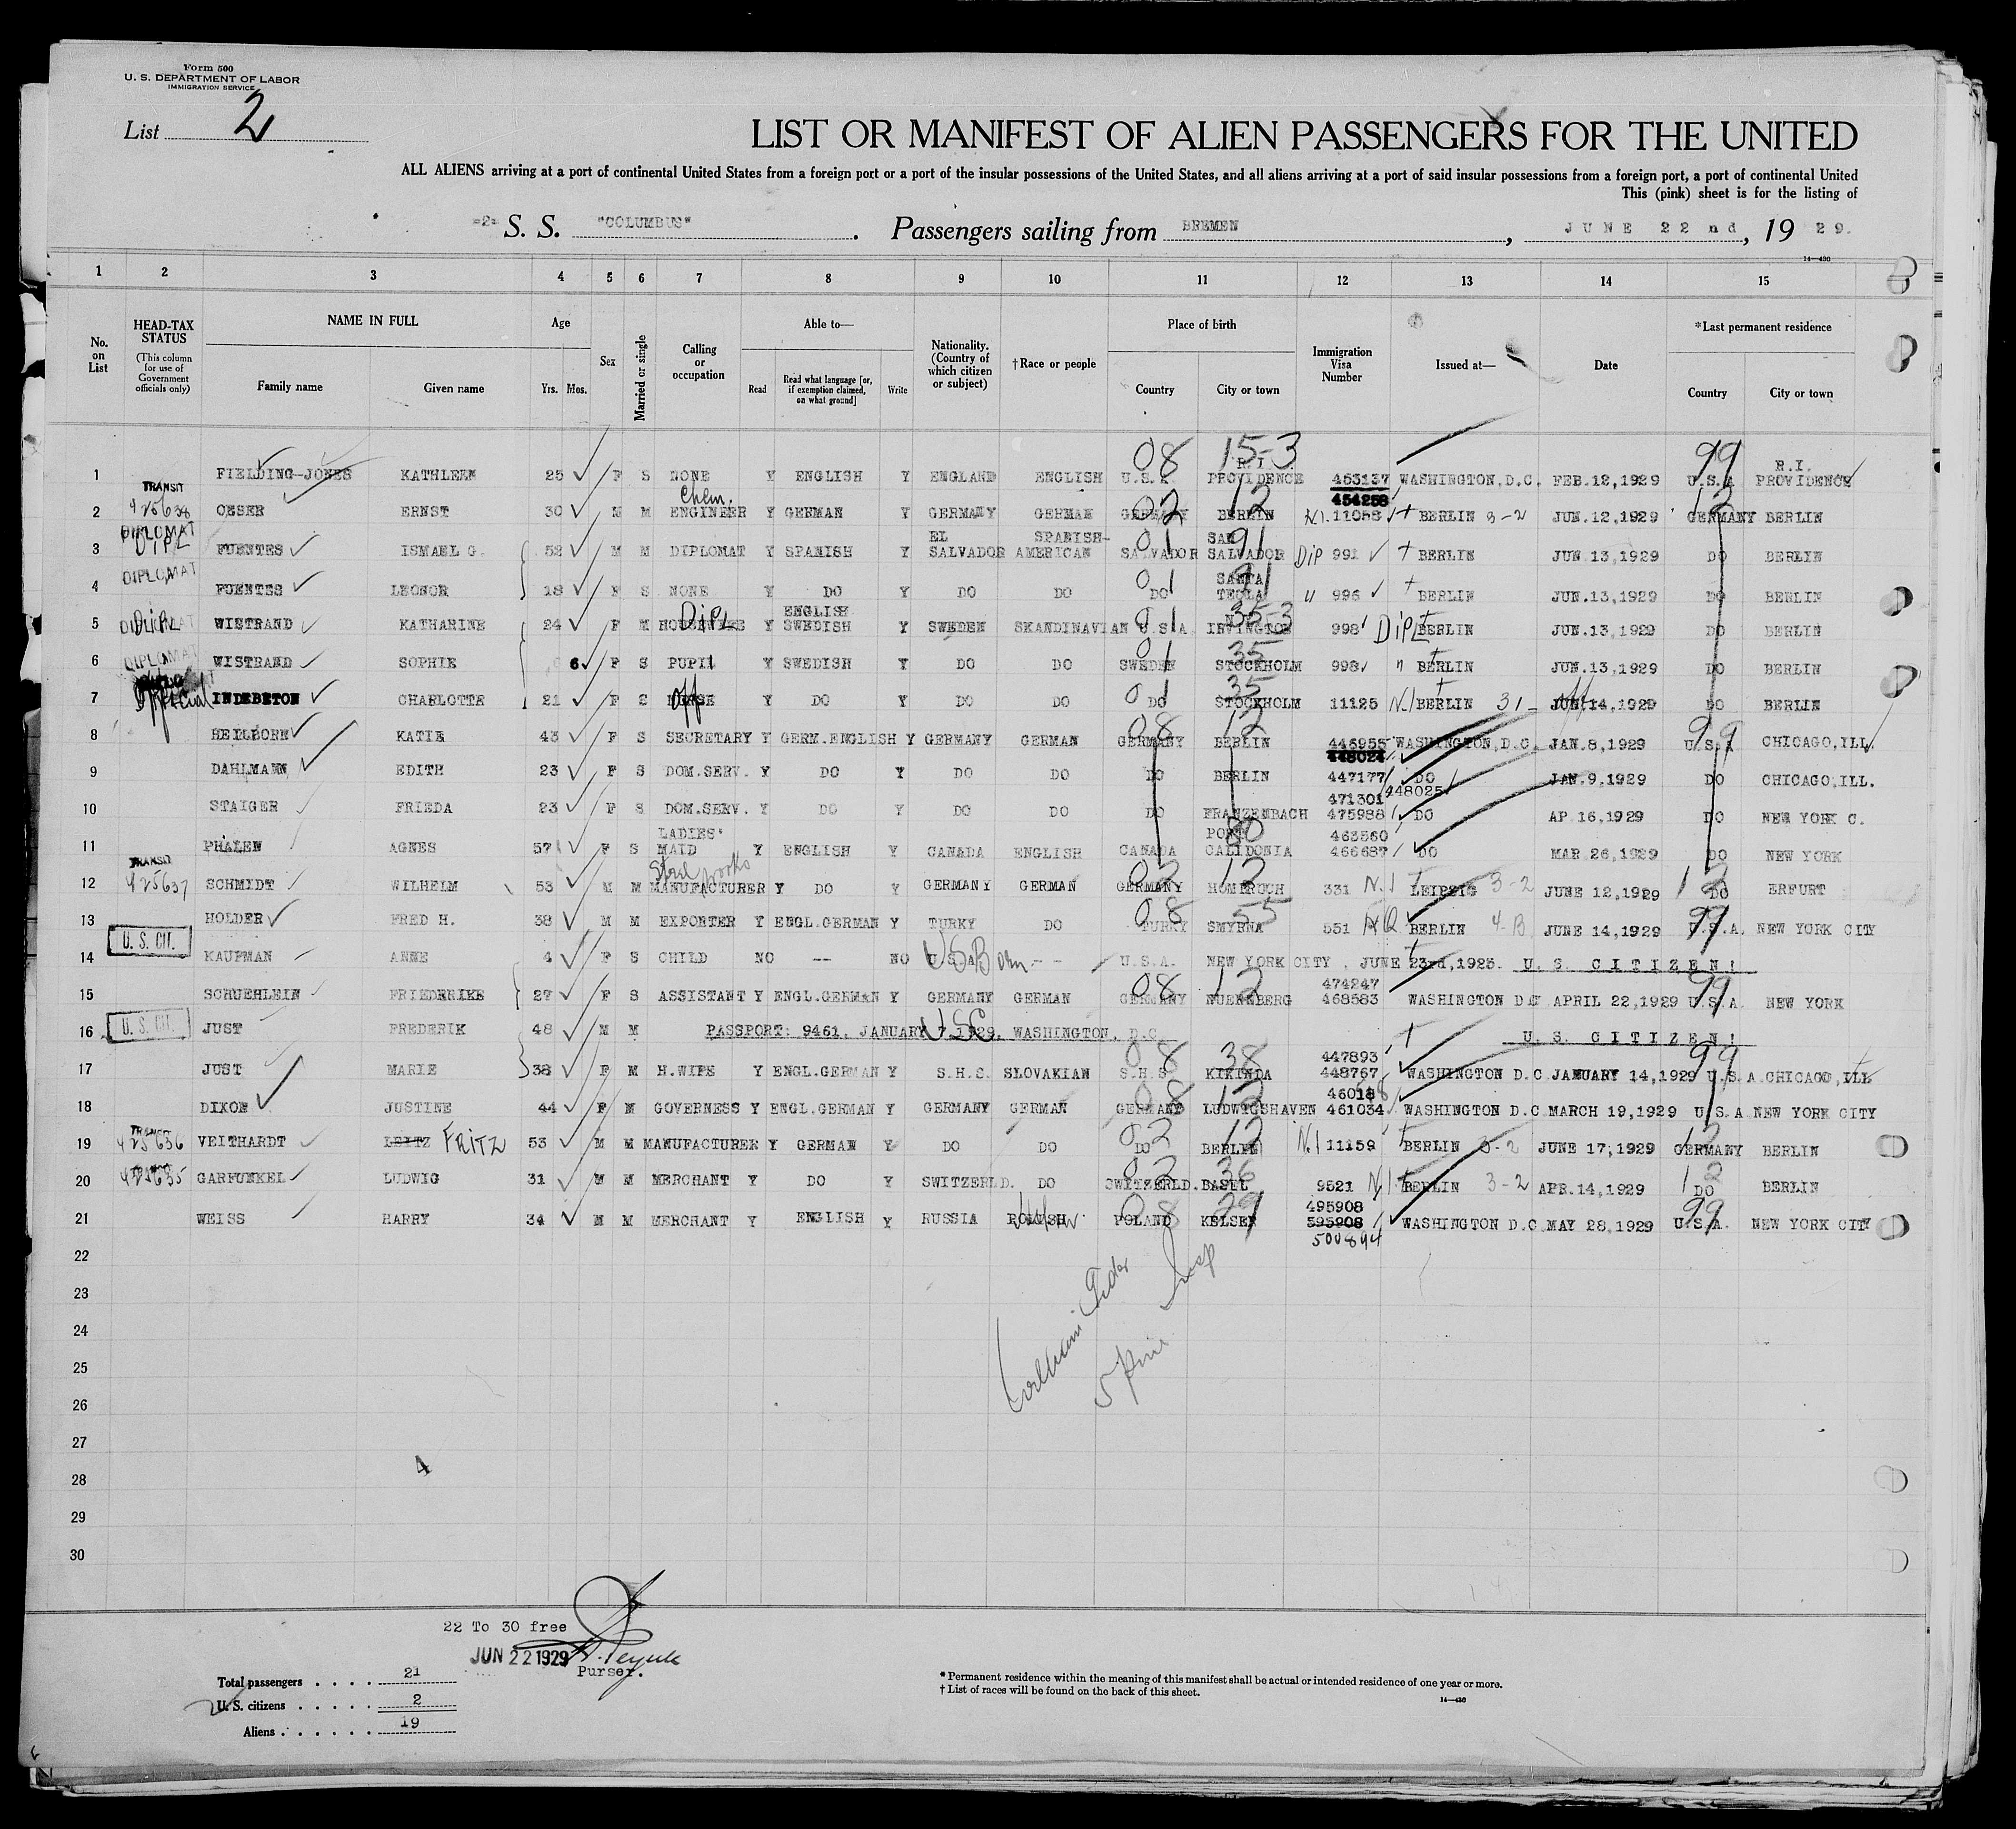 Form 500
U. S. DEPARTMENT OF LABOR
IMMIGRATION SERVICE
List 2
LIST OR MANIFEST OF ALIEN PASSENGERS FOR THE UNITED
ALL ALIENS arriving at a port of continental United States from a foreign port or a port of the insular possessions of the United States, and all aliens arriving at a port of said insular possessions from a foreign port, a port of continental United
This (pink) sheet is for the listing of
-2- S. S. "COLUMBUS". Passengers sailing from BREMEN, JUNE 22nd, 1929.
14—430
1 2 3 4 5 6 7 8 9 10 11 12 13 14 15
No. on List
HEAD-TAX STATUS
(This column for use of Government officials only)
NAME IN FULL
Family name Given name
Age
Yrs. Mos.
Sex
Married or single
Calling or occupation
Able to—
Read
Read what language [or, if exemption claimed, on what ground]
Write
Nationality. (Country of which citizen or subject)
†Race or people
Place of birth
Country City or town
Immigration Visa Number
Issued at—
Date
*Last permanent residence
Country City or town
1 FIELDING-JONES KATHLEEN 25 F S NONE Y ENGLISH Y ENGLAND ENGLISH 08 U.S.A. 15-3 R.I. PROVIDENCE 453137 454258 WASHINGTON,D.C. FEB.12,1929 99 U.S.A R.I. PROVIDENCE
2 TRANSIT 425638 OESER ERNST 30 M M Chem. ENGINEER Y GERMAN Y GERMANY GERMAN 02 GERMANY 12 BERLIN N.I. 11058 BERLIN 3-2 JUN.12,1929 12 GERMANY BERLIN
3 DIPLOMAT DIPL FUENTES ISMAEL G. 52 M M DIPLOMAT Y SPANISH Y EL SALVADOR SPANISH-AMERICAN 01 SALVADOR 91 SAN SALVADOR Dip 991 BERLIN JUN.13,1929 DO BERLIN
4 DIPLOMAT FUENTES LEONOR 18 F S NONE Y DO Y DO DO 01 DO 91 SANTA TECLA " 996 BERLIN JUN.13,1929 DO BERLIN
5 DIPLOMAT DIPL WISTRAND KATHARINE 24 F M HOUSEWIFE DIPL Y ENGLISH SWEDISH Y SWEDEN SKANDINAVIAN 01 U.S.A. 35-3 IRVINGTON 998 DIPL BERLIN JUN.13,1929 DO BERLIN
6 DIPLOMAT WISTRAND SOPHIE 6 F S PUPIL Y SWEDISH Y DO DO 01 SWEDEN 35 STOCKHOLM 998 " BERLIN JUN.13,1929 DO BERLIN
7 Official INDEBETON CHARLOTTE 21 F S NURSE Off Y DO Y DO DO 01 DO 35 STOCKHOLM 11125 N.I BERLIN 31- JUN.14,1929 Off DO BERLIN
8 HEILBORN KATIE 43 F S SECRETARY Y GERM.ENGLISH Y GERMANY GERMAN 08 GERMANY 12 BERLIN 446955 448024 WASHINGTON,D.C. JAN.8,1929 99 U.S.A CHICAGO,ILL.
9 DAHLMANN EDITH 23 F S DOM.SERV. Y DO Y DO DO DO BERLIN 447177 448025 DO JAN.9,1929 DO CHICAGO,ILL.
10 STAIGER FRIEDA 23 F S DOM.SERV. Y DO Y DO DO DO FRANZENBACH 471301 475988 DO AP 16,1929 DO NEW YORK C.
11 PHALEN AGNES 57 F S LADIES' MAID Y ENGLISH Y CANADA ENGLISH CANADA PORT CALIDONIA 463560 466687 DO MAR.26,1929 DO NEW YORK
12 TRANSIT 425637 SCHMIDT WILHELM 53 M M Steel works MANUFACTURER Y DO Y GERMANY GERMAN 02 GERMANY 12 HOMBRUCH 331 N.I LEIPZIG 3-2 JUNE 12,1929 12 DO ERFURT
13 HOLDER FRED H. 38 M M EXPORTER Y ENGL.GERMAN Y TURKY DO 08 TURKY 55 SMYRNA 551 BERLIN 4-B JUNE 14,1929 99 U.S.A. NEW YORK CITY
14 U. S. CIT. KAUFMAN ANNE 4 F S CHILD NO -- NO U.S.A USBorn -- U.S.A. NEW YORK CITY, JUNE 23rd,1925. U. S. CITIZEN!
15 SCHUEHLEIN FRIEDERIKE 27 F S ASSISTANT Y ENGL.GERMAN Y GERMANY GERMAN 08 GERMANY 12 NUERNBERG 474247 468583 WASHINGTON D.C APRIL 22,1929 99 U.S.A. NEW YORK
16 U. S. CIT. JUST FREDERIK 48 M M PASSPORT: 9461, JANUARY 7,1929, WASHINGTON, D.C. USC U. S. CITIZEN!
17 JUST MARIE 38 F M H.WIFE Y ENGL.GERMAN Y S.H.S. SLOVAKIAN 08 S.H.S. 38 KIKINDA 447893 448767 WASHINGTON D.C JANUARY 14,1929 99 U.S.A CHICAGO,ILL
18 DIXON JUSTINE 44 F M GOVERNESS Y ENGL.GERMAN Y GERMANY GERMAN 08 GERMANY 12 LUDWIGSHAVEN 461034 WASHINGTON D.C MARCH 19,1929 U.S.A NEW YORK CITY
19 TRANSIT 425636 VEITHARDT LEITZ FRITZ 53 M M MANUFACTURER Y GERMAN Y DO DO 02 DO 12 BERLIN N.I 11159 BERLIN 3-2 JUNE 17,1929 12 GERMANY BERLIN
20 425635 GARFUNKEL LUDWIG 31 M M MERCHANT Y DO Y SWITZERLD. DO 02 SWITZERLD. 36 BASEL 9521 N.I BERLIN 3-2 APR.14,1929 12 DO BERLIN
21 WEISS HARRY 34 M M MERCHANT Y ENGLISH Y RUSSIA POLISH 08 POLAND 29 KELSEN 495908 595908 500894 WASHINGTON D.C MAY 28,1929 99 U.S.A. NEW YORK CITY
22
23
24
25
26
27
28
29
30
4
22 To 30 free
JUN 22 1929
Purser.
Total passengers 21
U. S. citizens 2
Aliens 19
* Permanent residence within the meaning of this manifest shall be actual or intended residence of one year or more.
† List of races will be found on the back of this sheet.
14—430